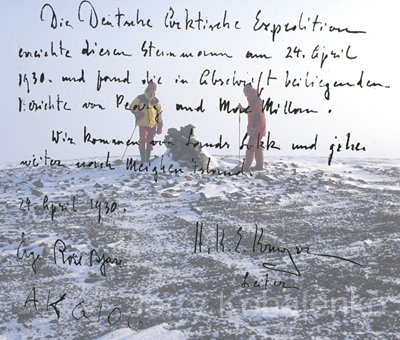 Die Deutsche Arktische Expedition
erreichte diesen Steinmann am 24. April
1930. und fand die in Abschrift beiliegenden
Berichte von Peary und MacMillan.
Wir kommen von Lands Lokk und gehen
weiter nach Meighen Island.
24. April 1930.
H. K. E. Krueger
Leiter
Åge Rose Bjare